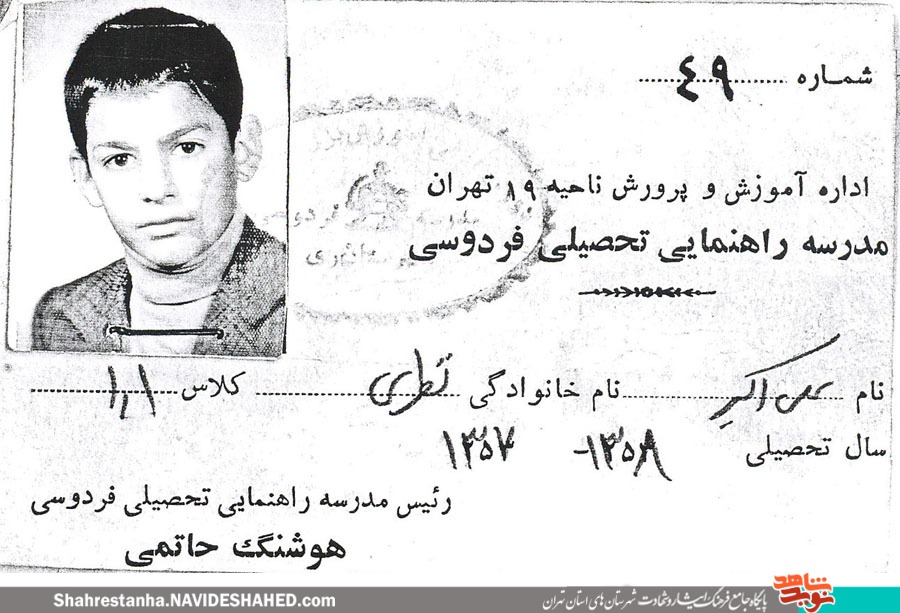 شماره ٤٩
اداره آموزش و پرورش ناحیه ۱۹ تهران
مدرسه راهنمایی تحصیلی فردوسی
نام علی اکبر نام خانوادگی کلاس ۱٫۱
سال تحصیلی ۱۳۵۸- ۱۳۵۷
رئیس مدرسه راهنمایی تحصیلی فردوسی
هوشنگ حاتمی
نوید شاهد
پایگاه جامع فرهنگ ایثار و شهادت شهرستان های استان تهران
Shahrestanha.NAVIDESHAHED.com